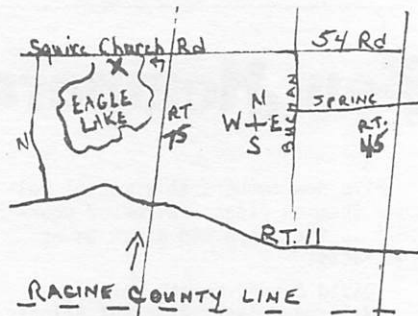 Squire Church Rd
54 Rd
X
EAGLE
LAKE
N
RT
75
N
W E
S
BUCMAN
SPRING
RT.
45
RT. 11
RACINE COUNTY LINE